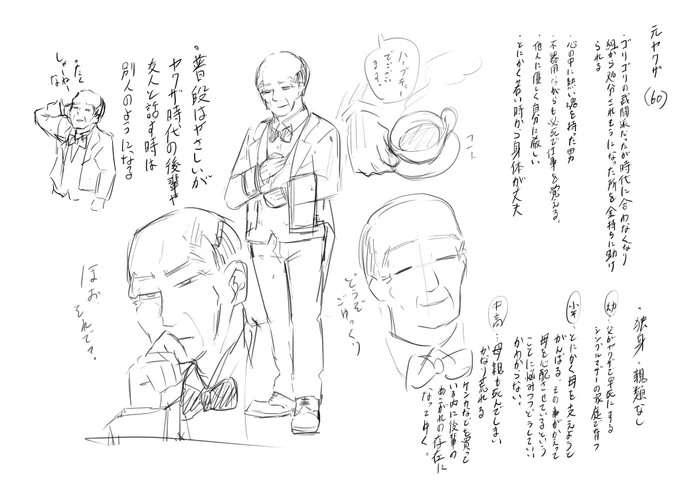 元ヤクザ (60)
・ゴリゴリの武闘派だったが時代に合わなくなり
組から処分されそうになった所を金持ちに助け
られる
・心の中に熱い魂を持った男
・不器用ながらも必死で仕事を覚える。
・他人に優しく自分に厳しい
・とにかく若い時から身体が丈夫
ハーブティー
でござい
ます。
コト
・普段はやさしいが
ヤクザ時代の後輩や
友人と話す時は
別人のようになる
ったく
しょーが
ねーな
・独身・親類なし
幼 ・父がヤクザで早死にする
シングルマザーの家庭で育つ
小 ・とにかく母を支えようと
がんばる。その事がかえって
母を心配させているという
ことに悩みつつどうしていいか
わからない。
中高 …母親も死んでしまい
かなり荒れる
ケンカなどを買って
いる内に後輩の
あこがれの存在に
なってゆく。
どうぞ
ごゆっくり
ほお
それで?